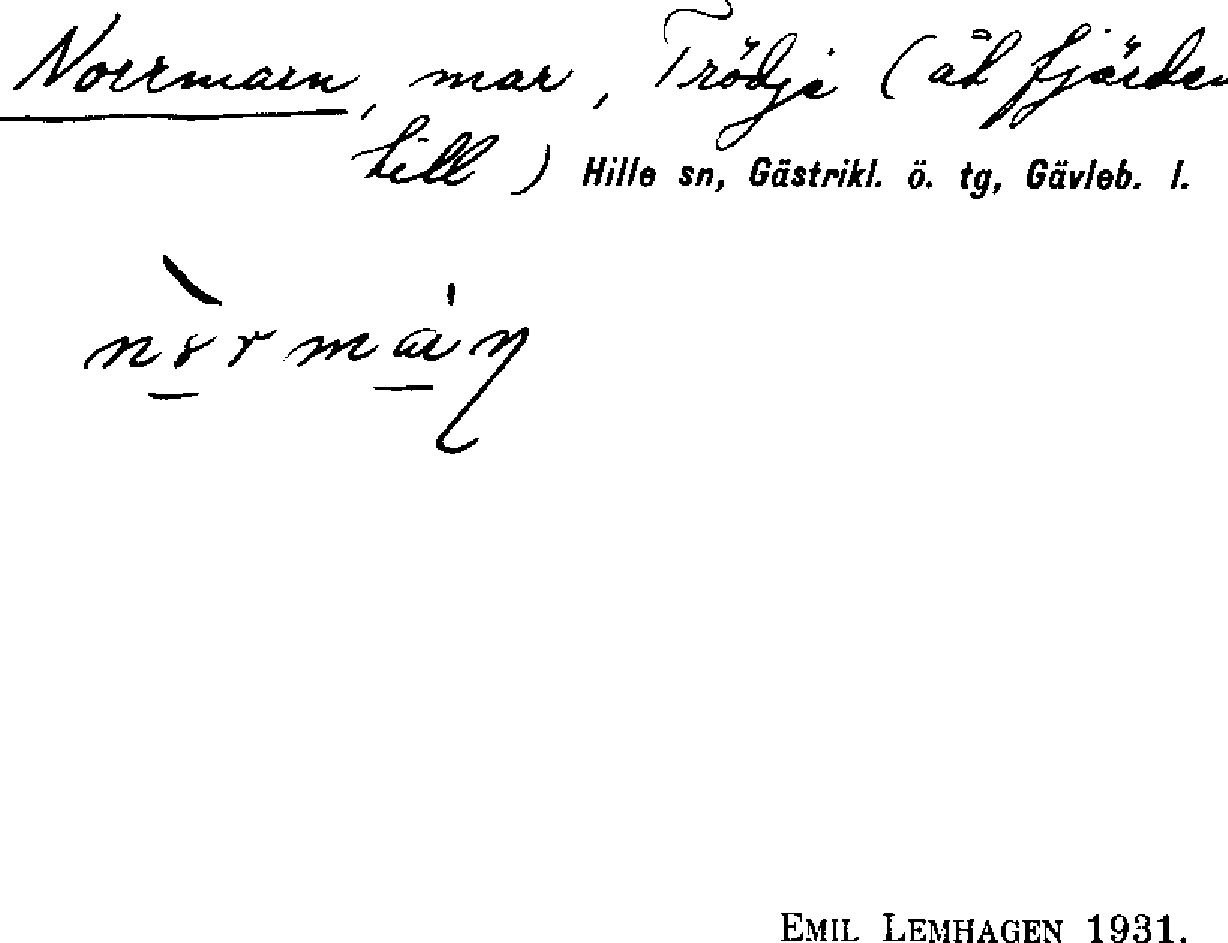 Norrmarn, mar, Trödje (åt fjärden
till) Hille sn, Gästrikl. ö. tg, Gävleb. l.
EMIL LEMHAGEN 1931.